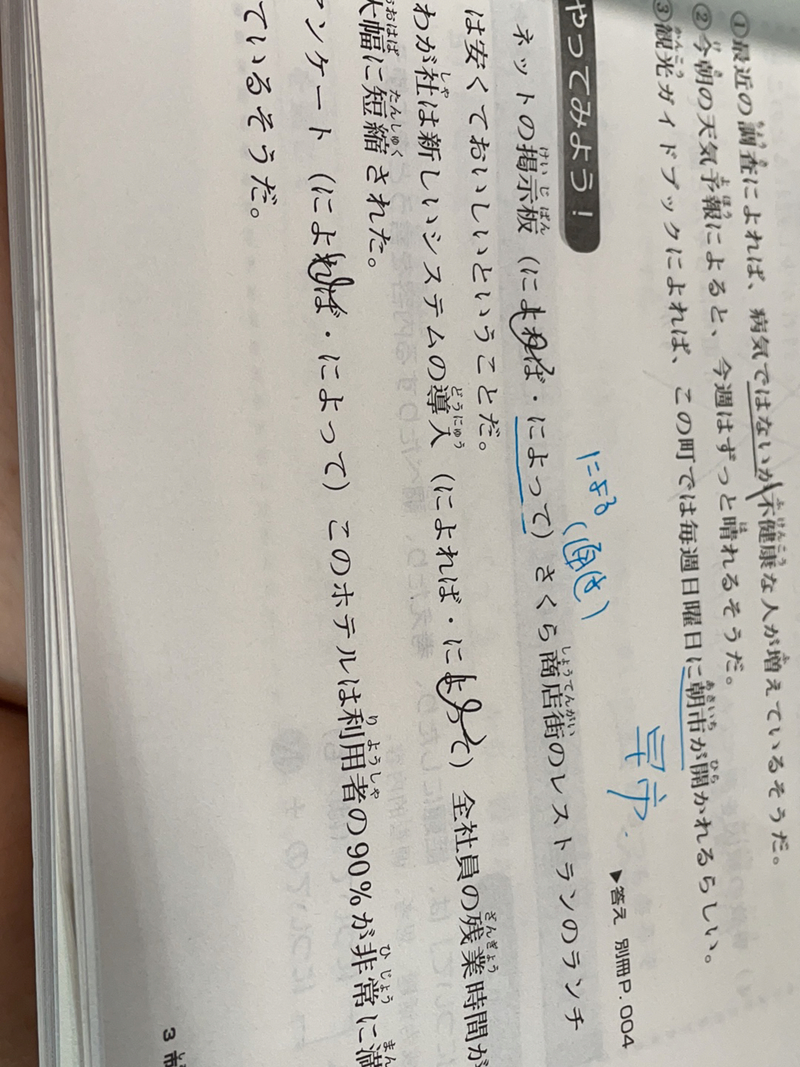 ①最近の調査によれば、病気ではないが不健康な人が増えているそうだ。
②今朝の天気予報によると、今週はずっと晴れるそうだ。
③観光ガイドブックによれば、この町では毎週日曜日に朝市が開かれるらしい。
早市.
やってみよう！
▶答え 別冊P.004
による
ネットの掲示板（によれば・によって）さくら商店街のレストランのランチ
は安くておいしいということだ。
わが社は新しいシステムの導入（によれば・によって）全社員の残業時間が
大幅に短縮された。
アンケート（によれば・によって）このホテルは利用者の90%が非常に満
ているそうだ。
3